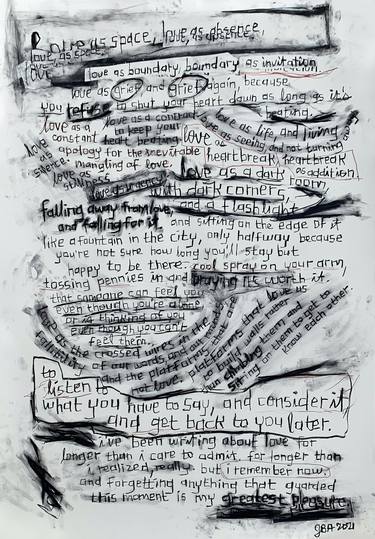 love as space, love as absence,
love as space, love as absence.
love
love as boundary, boundary as invitation
love as grief and grief again, because
you refuse to shut your heart down as long as it's
beating.
love as a contract
to keep your
heart beating.
love as a
constant
apology for the inevitable
mangling of love.
love as
silence.
love as
stillness
love as seeing, and not turning
love as life, and living
heartbreak, heartbreak
as addition
love as a dark room,
with dark corners,
and a flashlight.
falling away from love,
and falling for it.
and sitting on the edge of it
like a fountain in the city, only halfway because
you're not sure how long you'll stay but
happy to be there. cool spray on your arm,
tossing pennies in and praying it's worth it.
that someone can feel you
even though you're alone
or is thinking of you
even though you can't
feel them.
love as the crossed wires in the
of our words and our
and the platforms that are
not love. platforms that
to build walls rather
than climbing them and get to
sitting on them to get to
know each other.
to
listen to
what you have to say, and consider it
and get back to you later.
i've been writing about love for
longer than i care to admit. for longer than
i realized, really. but i remember now,
and forgetting anything that guarded
this moment is my greatest pleasure.
JBA 2021